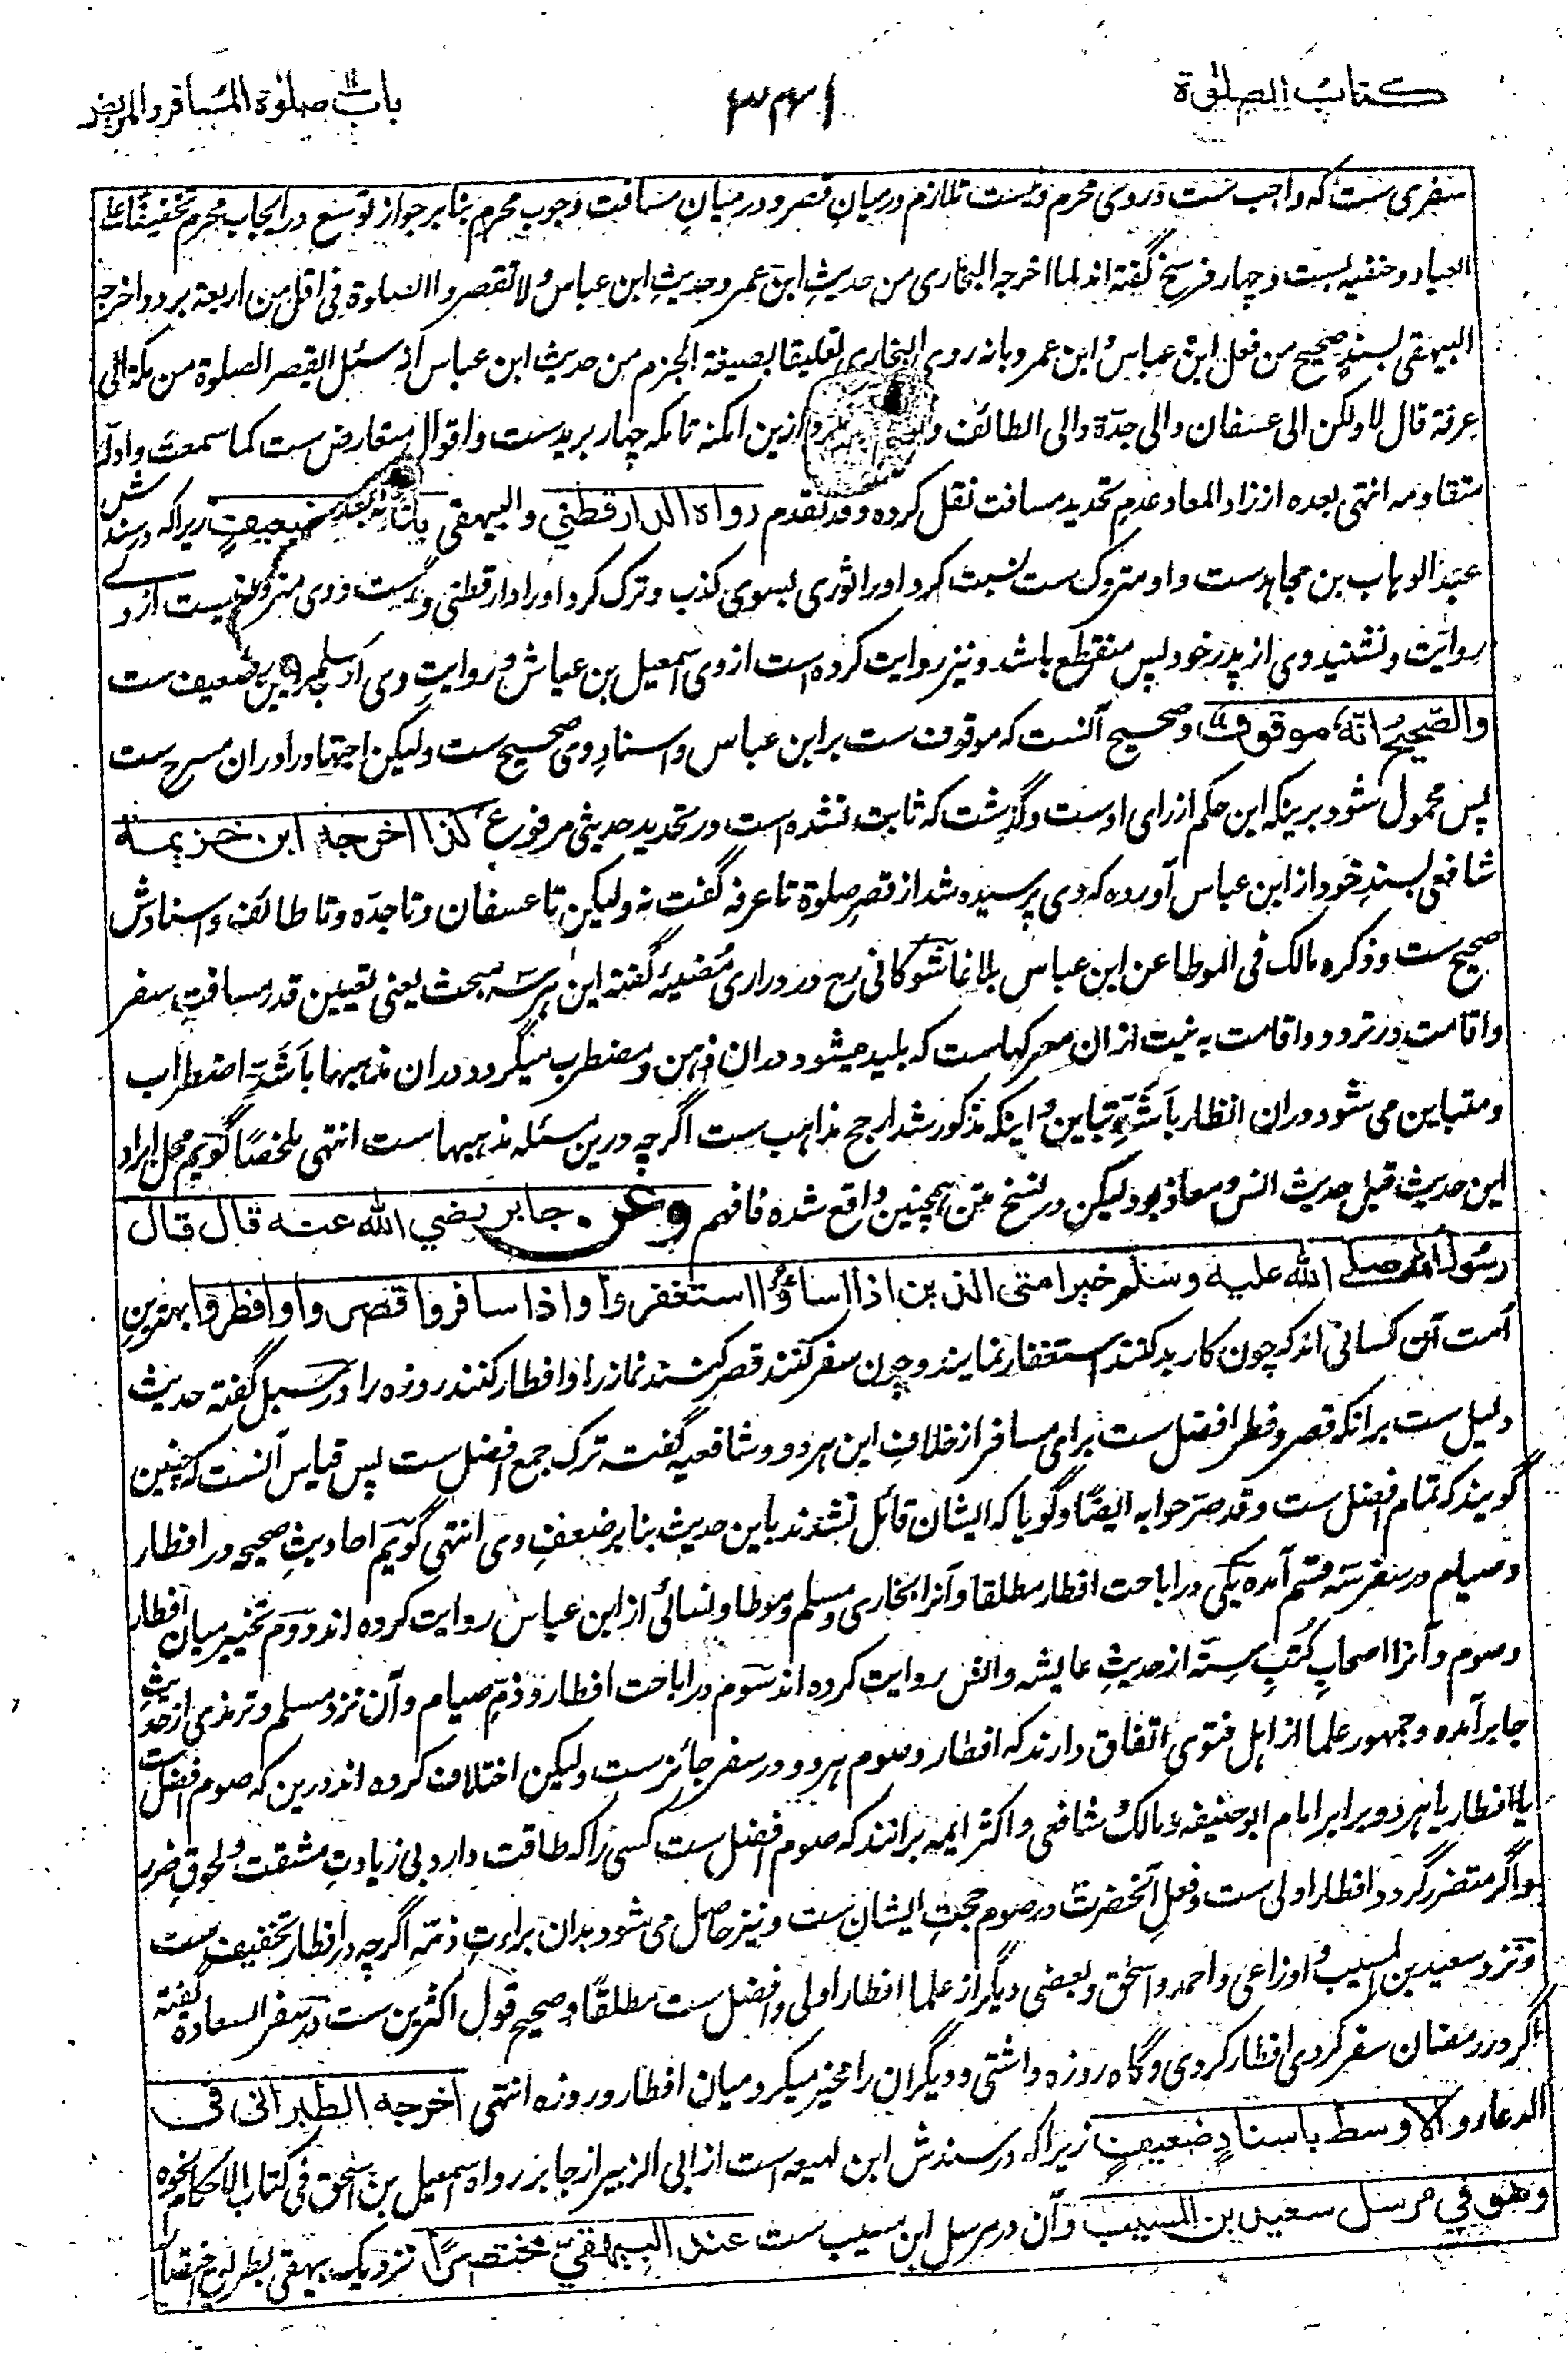 کتاب الصلوة
۳۴۱
باب صلوة المسافر والمریض
سفری ست که واجب ست در وی محرم و نیست تلازم در میان قصر و در میان مسافت وجوب محرم بنا بر جواز توسع در ایجاب محرم تخفیفًا علی
العباد و حنفیه بست و چهار فرسخ گفته اند لما اخرجه البخاری من حدیث ابن عمر و حدیث ابن عباس لا تقصروا الصلوة فی اقل من اربعة برد و اخرجه
البیهقی بسند صحیح من فعل ابن عباس و ابن عمر و بانه روی البخاری تعلیقا بصیغة الجزم من حدیث ابن عباس انه سئل القصر الصلوة من مکة الی
عرفة قال لا ولکن الی عسفان والی جدّة والی الطائف ازین امکنه تا مکه چهار برید ست و اقوال متعارض ست کما سمعت و ادله
متقاومه انتهی بعده از زاد المعاد عدم تحدید مسافت نقل کرده و قد تقدم رواه الدارقطني والبیهقي باسناد ضعیفٍ زیرا که در سندش
عبد الوهاب بن مجاهد ست و او متروک ست نسبت کرد او را ثوری بسوی کذب و ترک کرد او را دارقطنی و وی متروک نیست از وے
روایت و نشنید وی از پدر خود پس منقطع باشد و نیز روایت کرده است از وی اسمعیل بن عیاش و روایت وی از ضعیف ست
والصّحیحُ انّهٗ موقوفٌ و صحیح آنست که موقوف ست بر ابن عباس و اسناد وی صحیح ست ولیکن اجتهاد را دران مسرح ست
پس محمول شود برینکه این حکم از رای اوست و گذشت که ثابت نشده است در تحدید حدیثی مرفوع کذا اخرجه ابن خزیمة
شافعی بسند خود از ابن عباس آورده که وی پرسیده شد از قصر صلوة تا عرفه گفت نه ولیکن تا عسفان و تا جدّه و تا طائف و اسنادش
صحیح ست و ذکره مالک فی الموطا عن ابن عباس بلاغا شوکانی رح در دراری مُضیئه گفته این هر سه مبحث یعنی تعیین قدر مسافت سفر
و اقامت در تردد و اقامت به نیت ازان معرکها ست که بلید میشود دران ذهن و مضطرب میگردد دران مذهبها بَاَشَدِّ اضطراب
و متباین می شود دران انظار بَاَشَدِّ تباین و اینکه مذکور شد ارجح مذاهب ست اگرچه درین مسئله مذهبها ست انتهی ملخصًا گویم محل ایراد
این حدیث قبل حدیث انس و معاذ بود لیکن در نسخ متن همچنین واقع شده فافهم وعن جابر رضي الله عنه قال قال
رسول الله صلے الله علیه وسلم خیر امتی الذین اذا اساؤُا استغفروا و اذا سافروا قصروا و افطروا بهترین
اُمت آن کسانی اند که چون کار بد کنند استغفار نمایند و چون سفر کنند قصر کنند نماز را و افطار کنند روزه را در سبل گفته حدیث
دلیل ست برانکه قصر و فطر افضل ست برای مسافر از خلاف این هر دو و شافعیه گفت ترک جمع افضل ست پس قیاس آنست که چنین
گویند که تمام افضل ست و قد صرّحوا به ایضًا و گویا که ایشان قائل نشدند باین حدیث بنا بر ضعف وی انتهی گویم احادیث صحیحه در افطار
و صیام در سفر سه قسم آمده یکی در اباحت افطار مطلقا و آنرا بخاری و مسلم و موطا و نسائی از ابن عباس روایت کرده اند دوم تخییر میان افطار
و صوم و آنرا اصحاب کُتُبِ سِتّه از حدیث عایشه و انس روایت کرده اند سوم در اباحت افطار و ذمّ صیام و آن نزد مسلم و ترمذی از حدیث
جابر آمده و جمهور علما از اهل فتوی اتفاق دارند که افطار و صوم هر دو در سفر جائز ست ولیکن اختلاف کرده اند درین که صوم افضل ست
یا افطار یا هر دو برابر امام ابو حنیفه و مالک و شافعی و اکثر ایمه برانند که صوم افضل ست کسی را که طاقت دارد بی زیادت مشقت و لحوق ضرر
و اگر متضرر گردد افطار اولی ست و فعل آنحضرت در صوم حجت ایشان ست و نیز حاصل می شود بدان براءت ذمّه اگرچه در افطار تخفیف ست
و نزد سعید بن المسیب و اوزاعی و احمد و اسحق و بعضی دیگر از علما افطار اولی و افضل ست مطلقًا و صحیح قول اکثرین ست در سفر السعادة گفته
اگر در رمضان سفر کردی افطار کردی و گاه روزه داشتی و دیگران را مخیر میکرد میان افطار و روزه انتهی اخرجه الطبرانی فی
الدعاء والاوسط باسنادٍ ضعیفٍ زیرا که در سندش ابن لهیعه است از ابی الزبیر از جابر رواه اسمعیل بن اسحق فی کتاب الاحکام نحوه
وهو في مرسل سعید بن المسیب و آن در مرسل ابن مسیب ست عند البیهقيّ مختصرًا نزدیک بیهقی بطریق اختصار